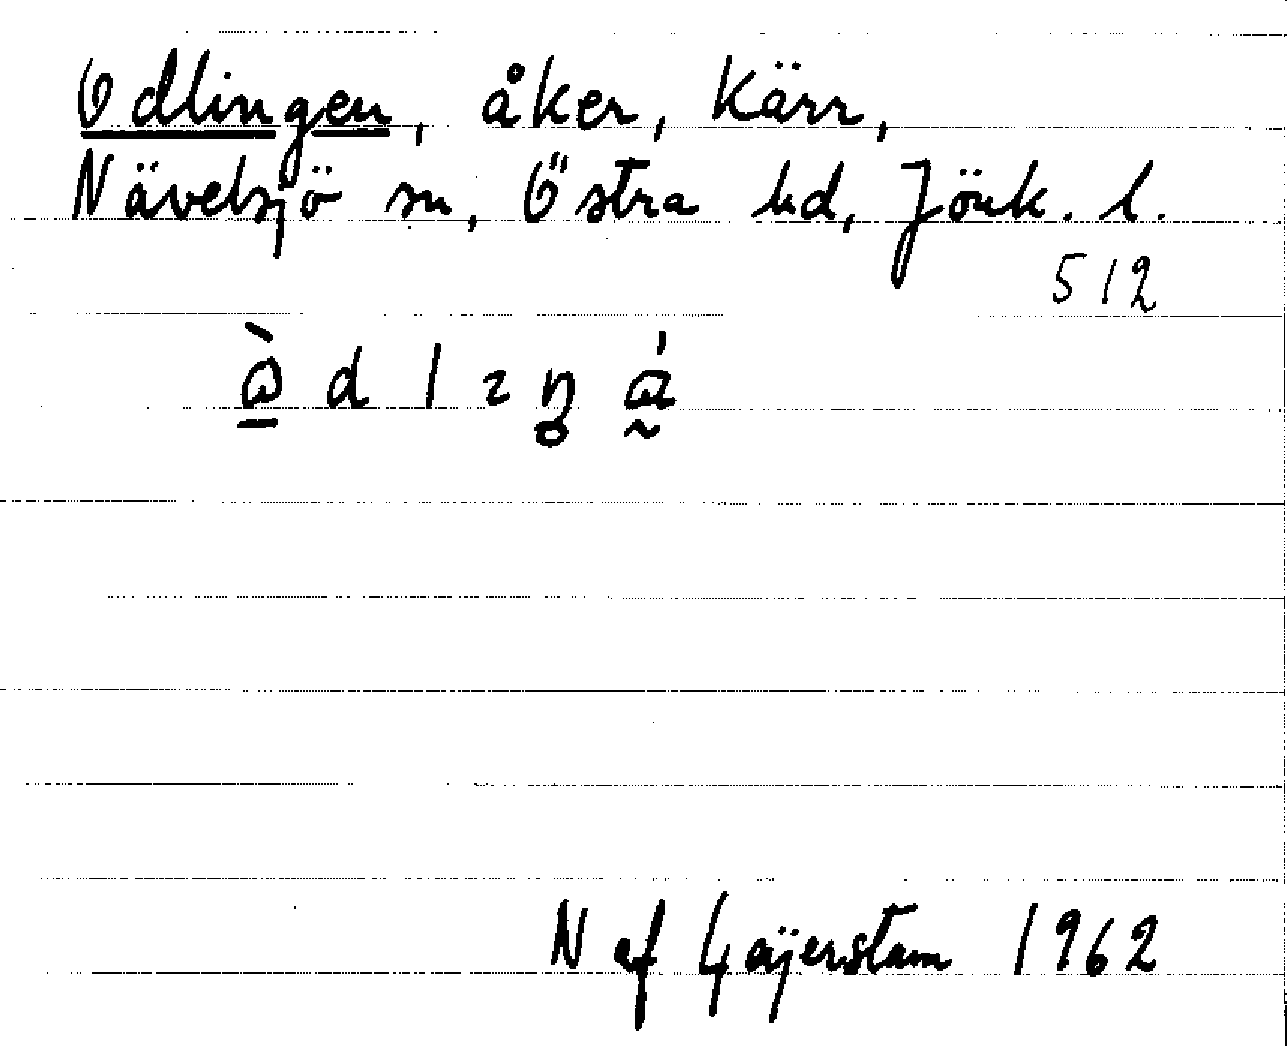 Odlingen, åker, Kärr,
Nävelsjö sn, Östra hd, Jönk. l.
512
N af Gäijerstam 1962